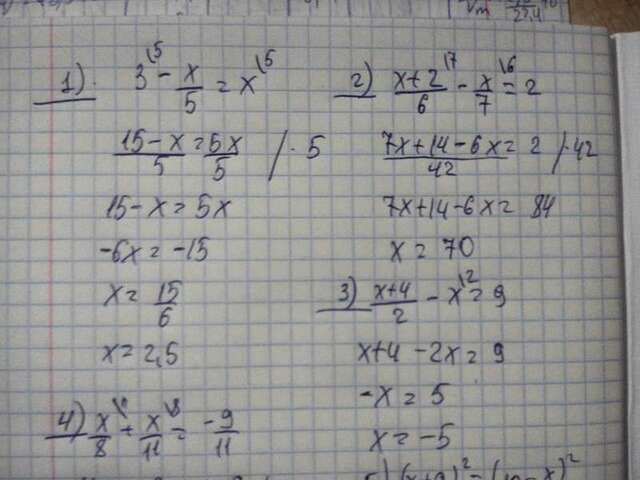 1) 3\5 − x/5 = x\5
(15−x)/5 = 5x/5 /·5
15−x = 5x
−6x = −15
x = 15/6
x = 2,5
2) (x+2)/6\7 − x/7\6 = 2
(7x+14−6x)/42 = 2 /·42
7x+14−6x = 84
x = 70
3) (x+4)/2 − x\2 = 9
x+4 −2x = 9
−x = 5
x = −5
4) x/8 + x/11\8 = −9/11